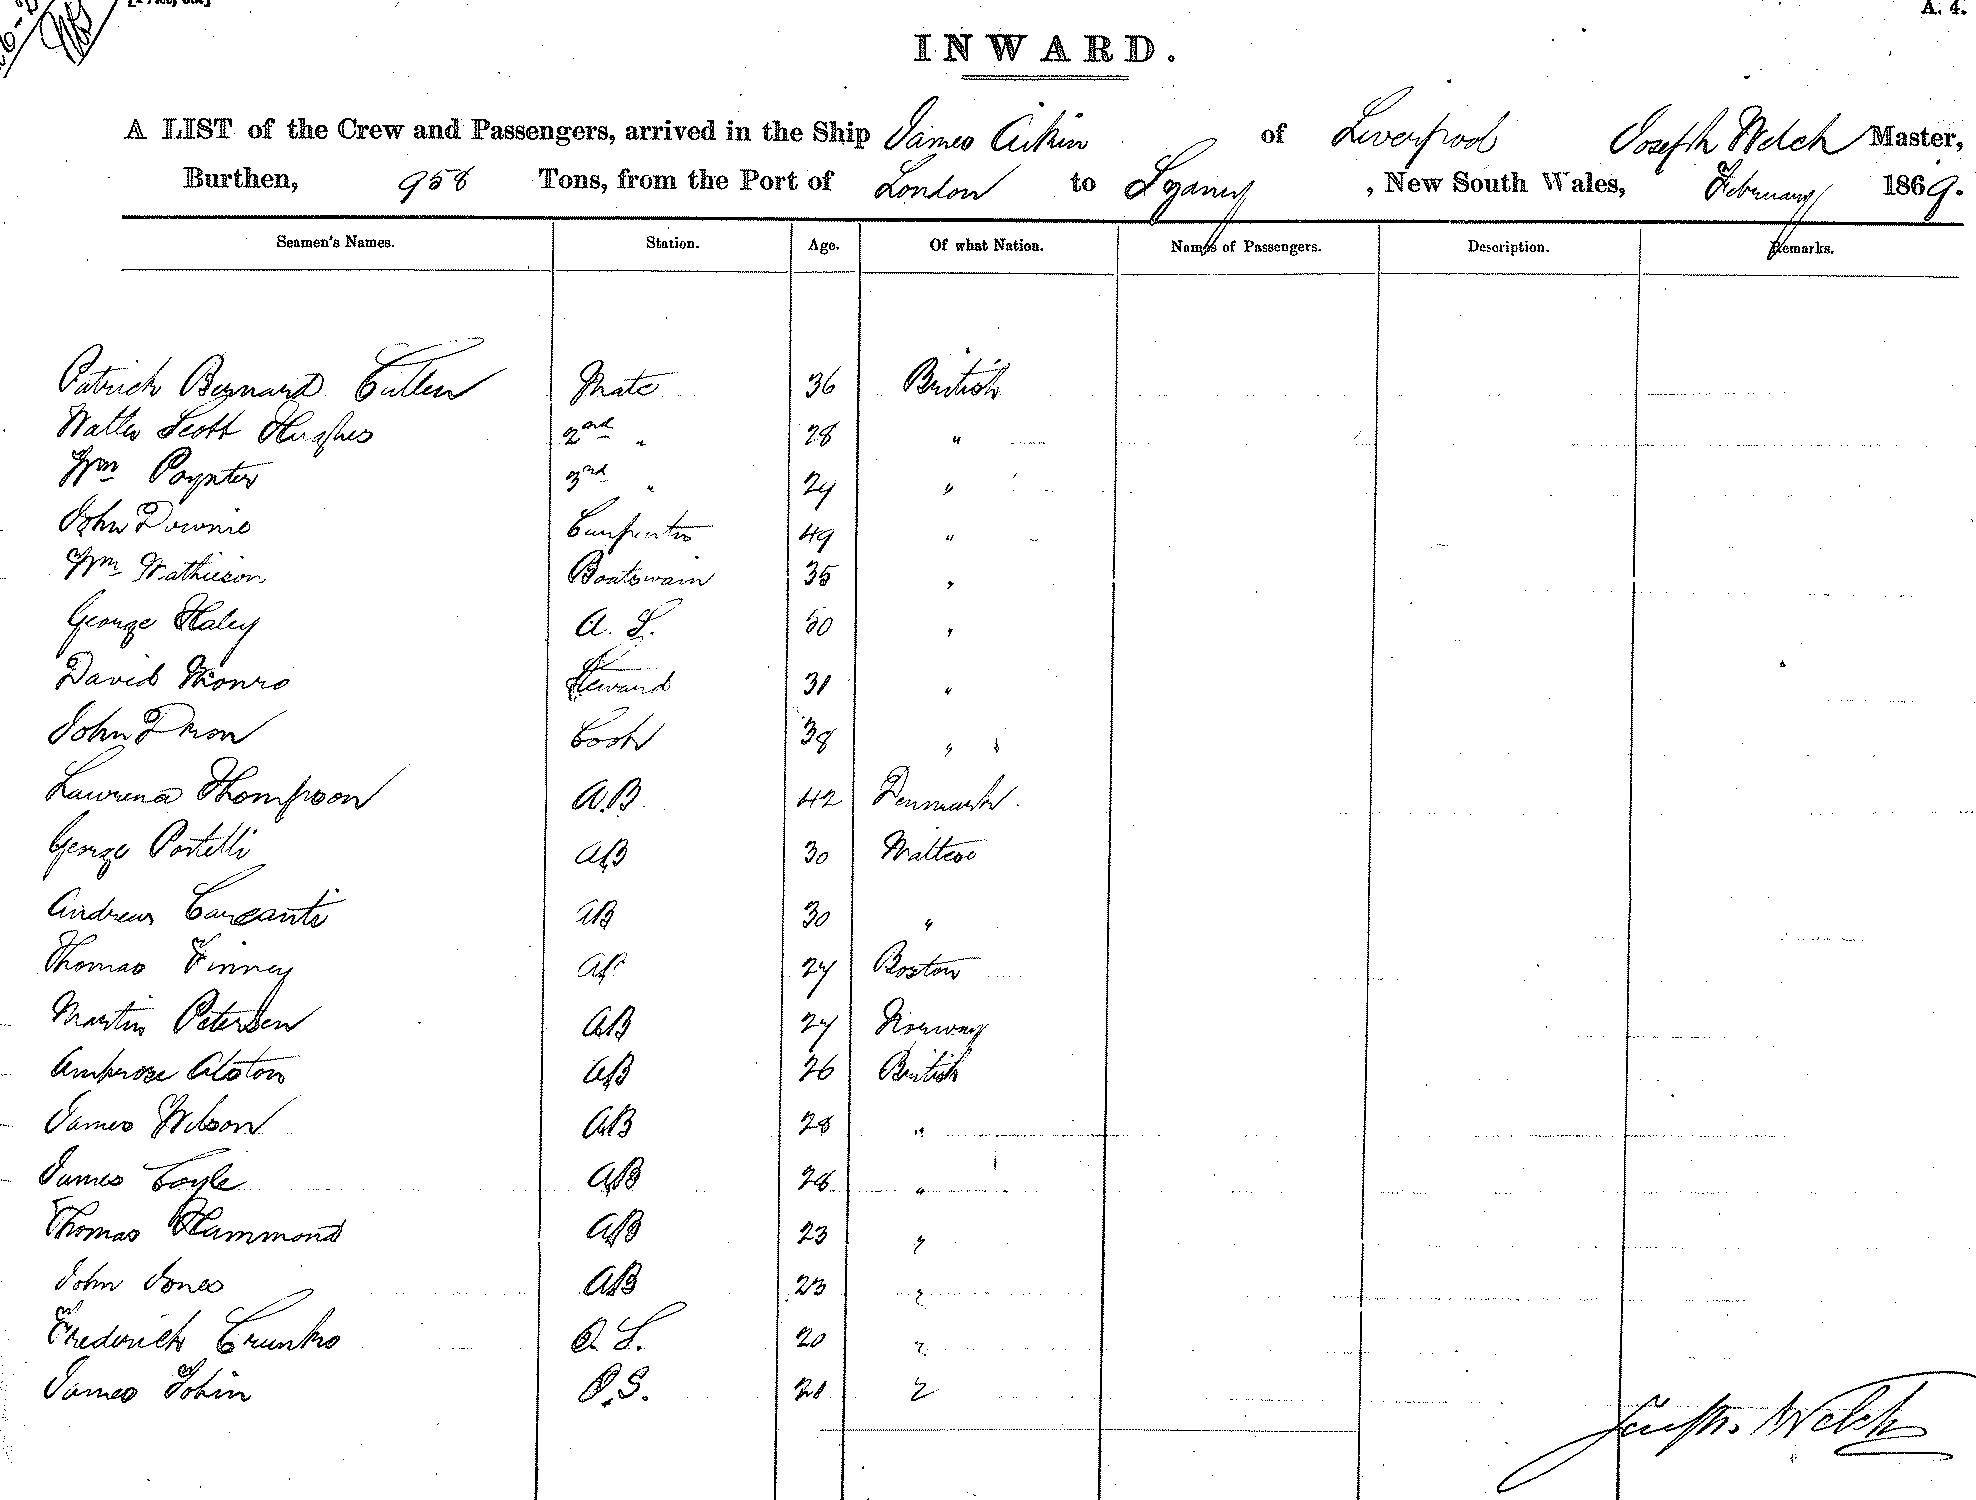 A. 4.
INWARD.
A LIST of the Crew and Passengers, arrived in the Ship James Aikin of Liverpool Joseph Welch Master,
Burthen, 958 Tons, from the Port of London to Sydney, New South Wales, February 1869.
Seamen's Names. Station. Age. Of what Nation. Names of Passengers. Description. Remarks.
Patrick Bernard Cullen Mate 36 British
Walter Scott Hughes 2nd " 28 "
Wm Poynter 3rd " 24 "
John Downie Carpenter 49 "
Wm Mathieson Boatswain 35 "
George Haley A. S. 50 "
David Monro Steward 31 "
John Dron Cook 38 "
Lawrence Thompson A.B. 42 Denmark
George Portelli AB 30 Maltese
Andrew AB 30 "
Thomas Finney AB 27 Boston
Martin Petersen AB 27 Norway
Ambrose Alston AB 26 British
James Wilson AB 28 "
James Coyle AB 28 "
Thomas Hammond AB 23 "
John Jones AB 23 "
Frederick O. S. 20 "
James Tobin O.S. 21 "
Joseph Welch